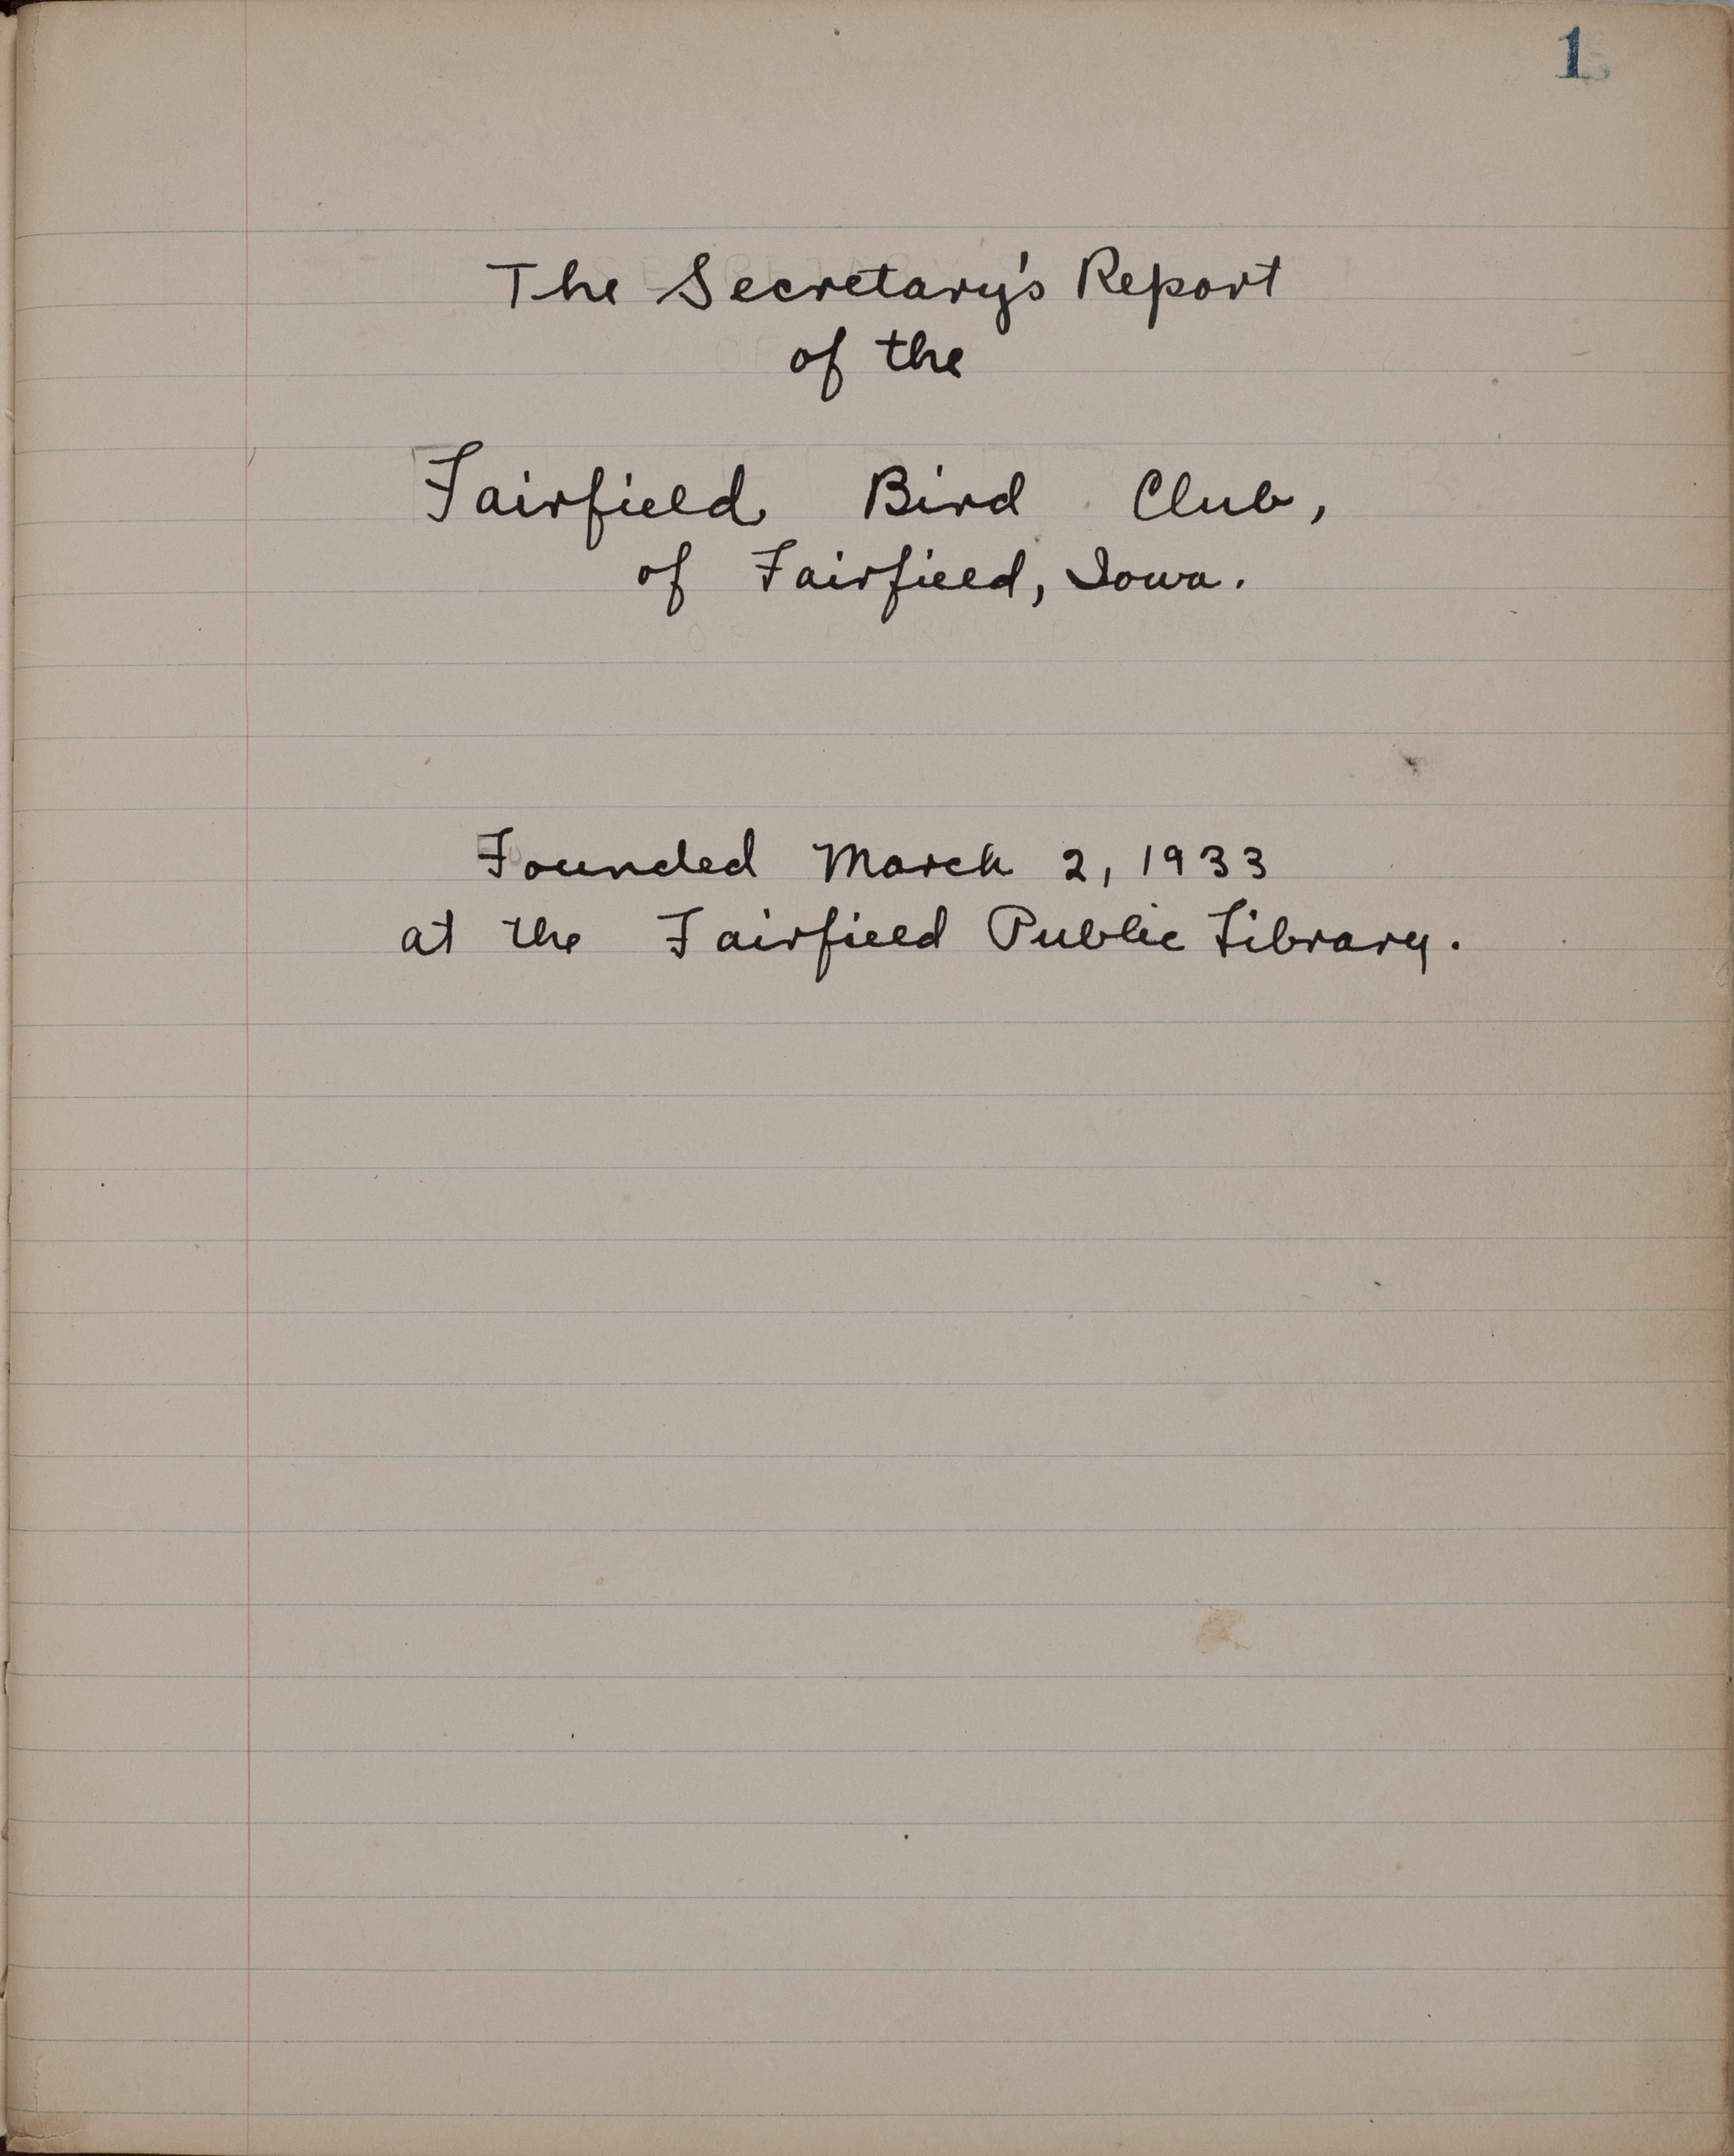 1
The Secretary's Report
of the
Fairfield Bird Club,
of Fairfield, Iowa.
Founded March 2, 1933
at the Fairfield Public Library.